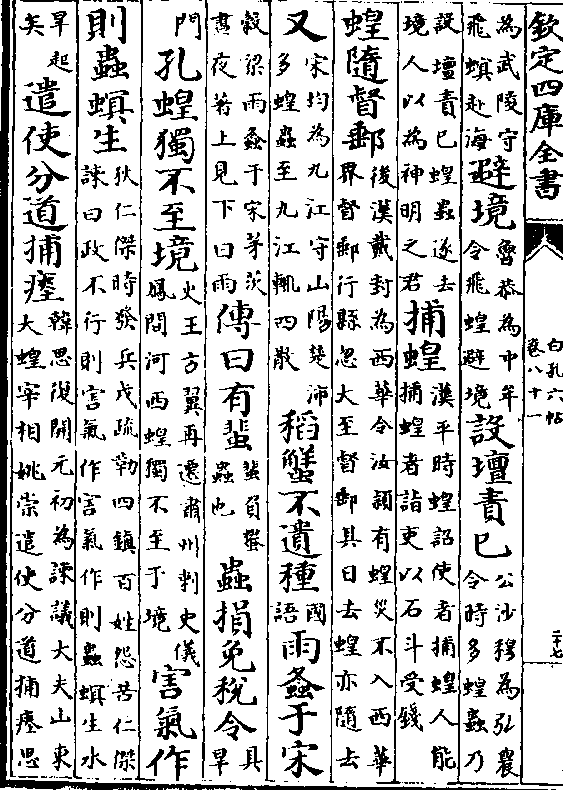 欽定四庫全書
白孔六帖
卷八十一
二十七
為武陵守飛螟赴海避境魯恭為中牟令飛蝗避境設壇責已公沙穆為弘農令時多蝗蟲乃
設壇責已蝗蟲遂去境人以為神明之君捕蝗漢平時蝗詔使者捕蝗人能捕蝗者詣吏以石斗受錢
蝗隨督郵後漢戴封為西華令汝潁有蝗災不入西華界督郵行縣忽大至督郵其日去蝗亦隨去
又宋均為九江守山陽楚沛多蝗蟲至九江輒四散稻蟹不遺種國語雨螽于宋
穀梁雨螽于宋茅茨晝夜著上見下曰雨傳曰有蜚蜚負蠜蟲也蟲損免稅令具旱
門孔蝗獨不至境火王方翼再遷肅州刺史儀鳳間河西蝗獨不至于境害氣作
則蟲螟生狄仁傑時發兵戍疏勒四鎮百姓怨苦仁傑諫曰政不行則害氣作害氣作則蟲螟生水
旱起矣遣使分道捕瘞韓思復開元初為諫議大夫山東大蝗宰相姚崇遣使分道捕瘞思